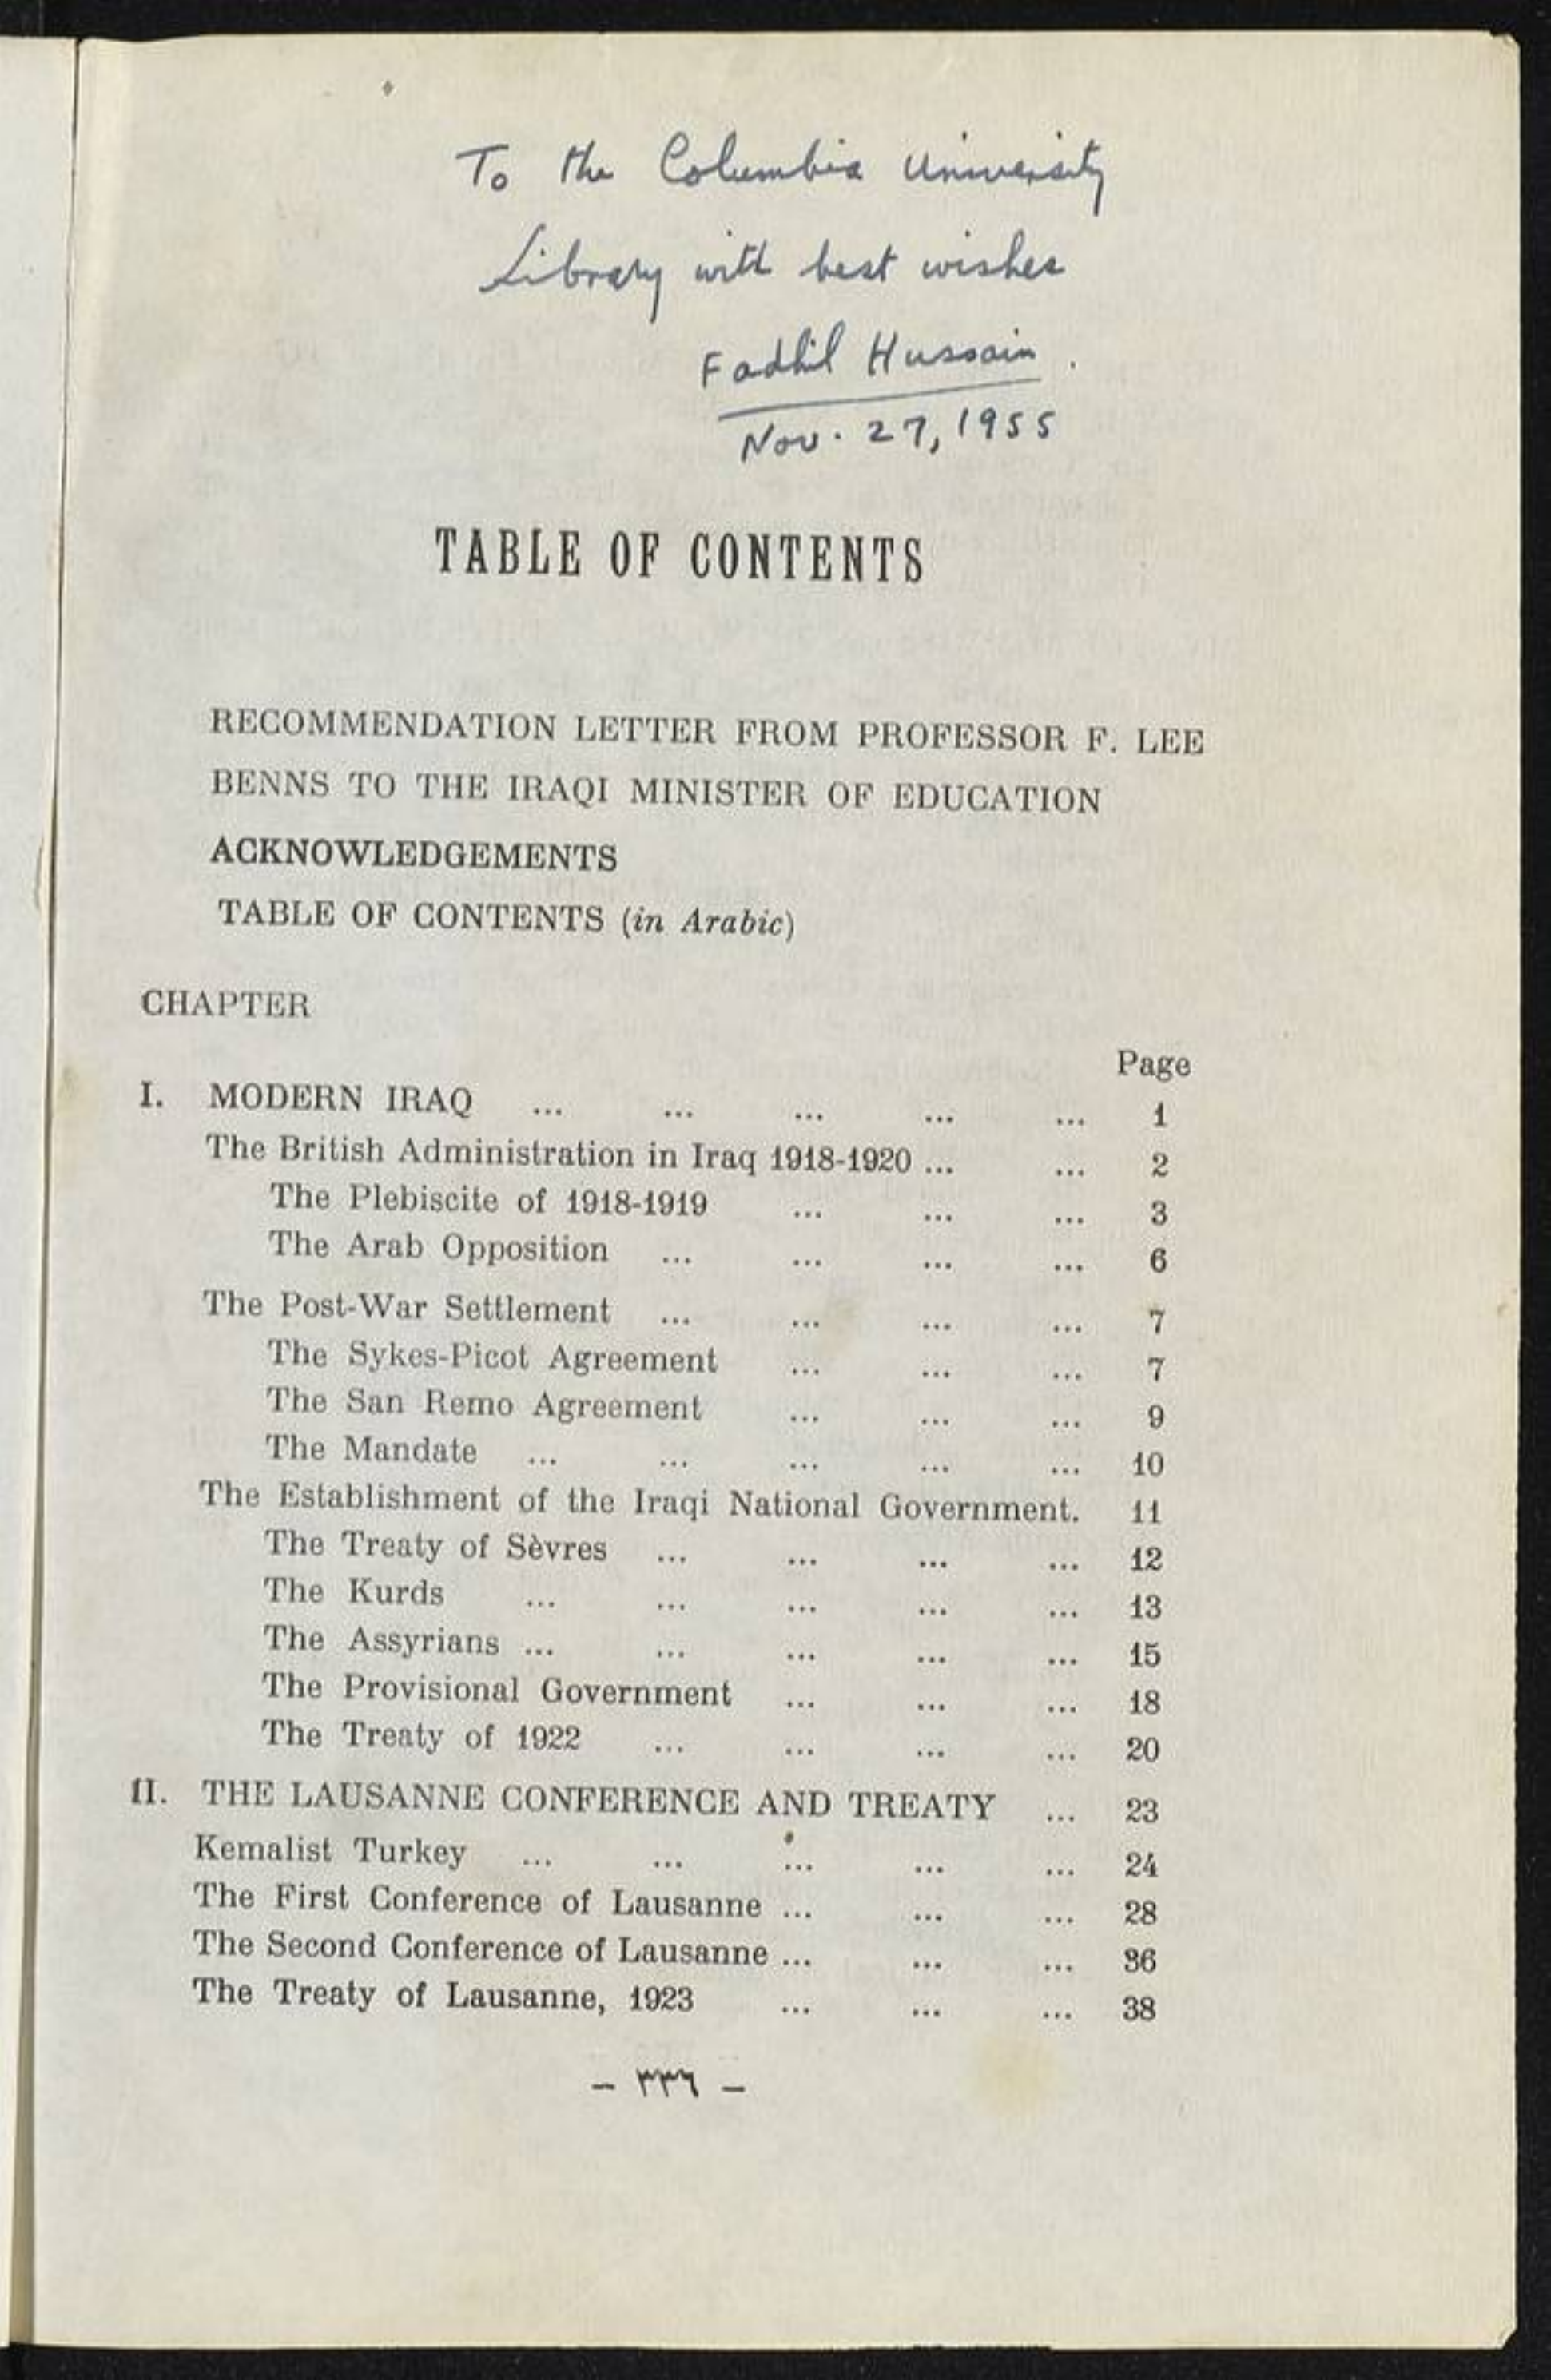 To the Columbia University
Library with best wishes
Fadhil Hussain.
Nov. 27, 1955
TABLE OF CONTENTS
RECOMMENDATION LETTER FROM PROFESSOR F. LEE
BENNS TO THE IRAQI MINISTER OF EDUCATION
ACKNOWLEDGEMENTS
TABLE OF CONTENTS (in Arabic)
CHAPTER
Page
I. MODERN IRAQ ... ... ... ... ... 1
The British Administration in Iraq 1918-1920 ... ... 2
The Plebiscite of 1918-1919 ... ... ... 3
The Arab Opposition ... ... ... ... 6
The Post-War Settlement ... ... ... ... 7
The Sykes-Picot Agreement ... ... ... 7
The San Remo Agreement ... ... ... 9
The Mandate ... ... ... ... ... 10
The Establishment of the Iraqi National Government. 11
The Treaty of Sèvres ... ... ... ... 12
The Kurds ... ... ... ... ... 13
The Assyrians ... ... ... ... ... 15
The Provisional Government ... ... ... 18
The Treaty of 1922 ... ... ... ... 20
II. THE LAUSANNE CONFERENCE AND TREATY ... 23
Kemalist Turkey ... ... ... ... ... 24
The First Conference of Lausanne ... ... ... 28
The Second Conference of Lausanne ... ... ... 36
The Treaty of Lausanne, 1923 ... ... ... 38
– ٣٣٦ –